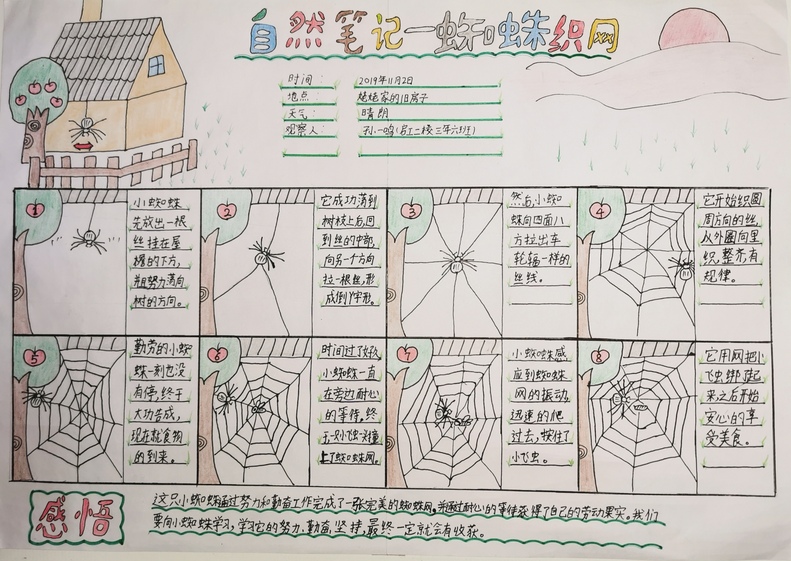 自然笔记—蜘蛛织网
时间: 2019年11月2日
地点: 姥姥家的旧房子
天气: 晴朗
观察人: 孙一鸣(二校三年六班)
1
小蜘蛛
先放出一根
丝挂在屋
檐的下方,
并努力荡向
树的方向。
2
它成功荡到
树枝上后,回
到丝的中部,
向另一个方向
拉一根丝,形
成倒Y字形。
3
然后,小蜘
蛛向四面八
方拉出车
轮辐一样的
丝线。
4
它开始织圆
周方向的丝,
从外圈向里
织,整齐,有
规律。
5
勤劳的小蜘
蛛一刻也没
有停,终于
大功告成,
现在就食物
的到来。
6
时间过了好久
小蜘蛛一直
在旁边耐心
的等待,终
于一次小飞虫撞
上了蜘蛛网。
7
小蜘蛛感
应到蜘蛛
网的振动,
迅速的爬
过去,按住了
小飞虫。
8
它用网把小
飞虫绑起
来,之后开始
安心的享
受美食。
感悟
这只小蜘蛛通过努力和勤奋工作完成了一张完美的蜘蛛网,并通过耐心的等待获得了自己的劳动果实。我们
要向小蜘蛛学习,学习它的努力、勤奋、坚持,最终一定就会有收获。